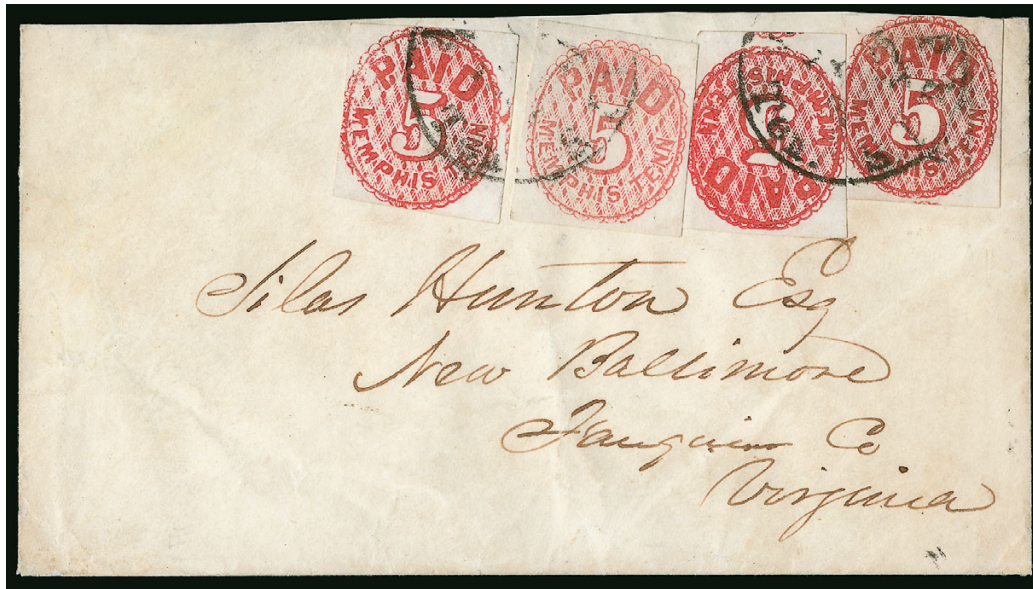 PAID
5
MEMPHIS TENN
PAID
5
MEMPHIS TENN
PAID
5
MEMPHIS TENN
PAID
5
MEMPHIS TENN
Silas Hunton Esq
New Baltimore
Fauquier Co
Virginia